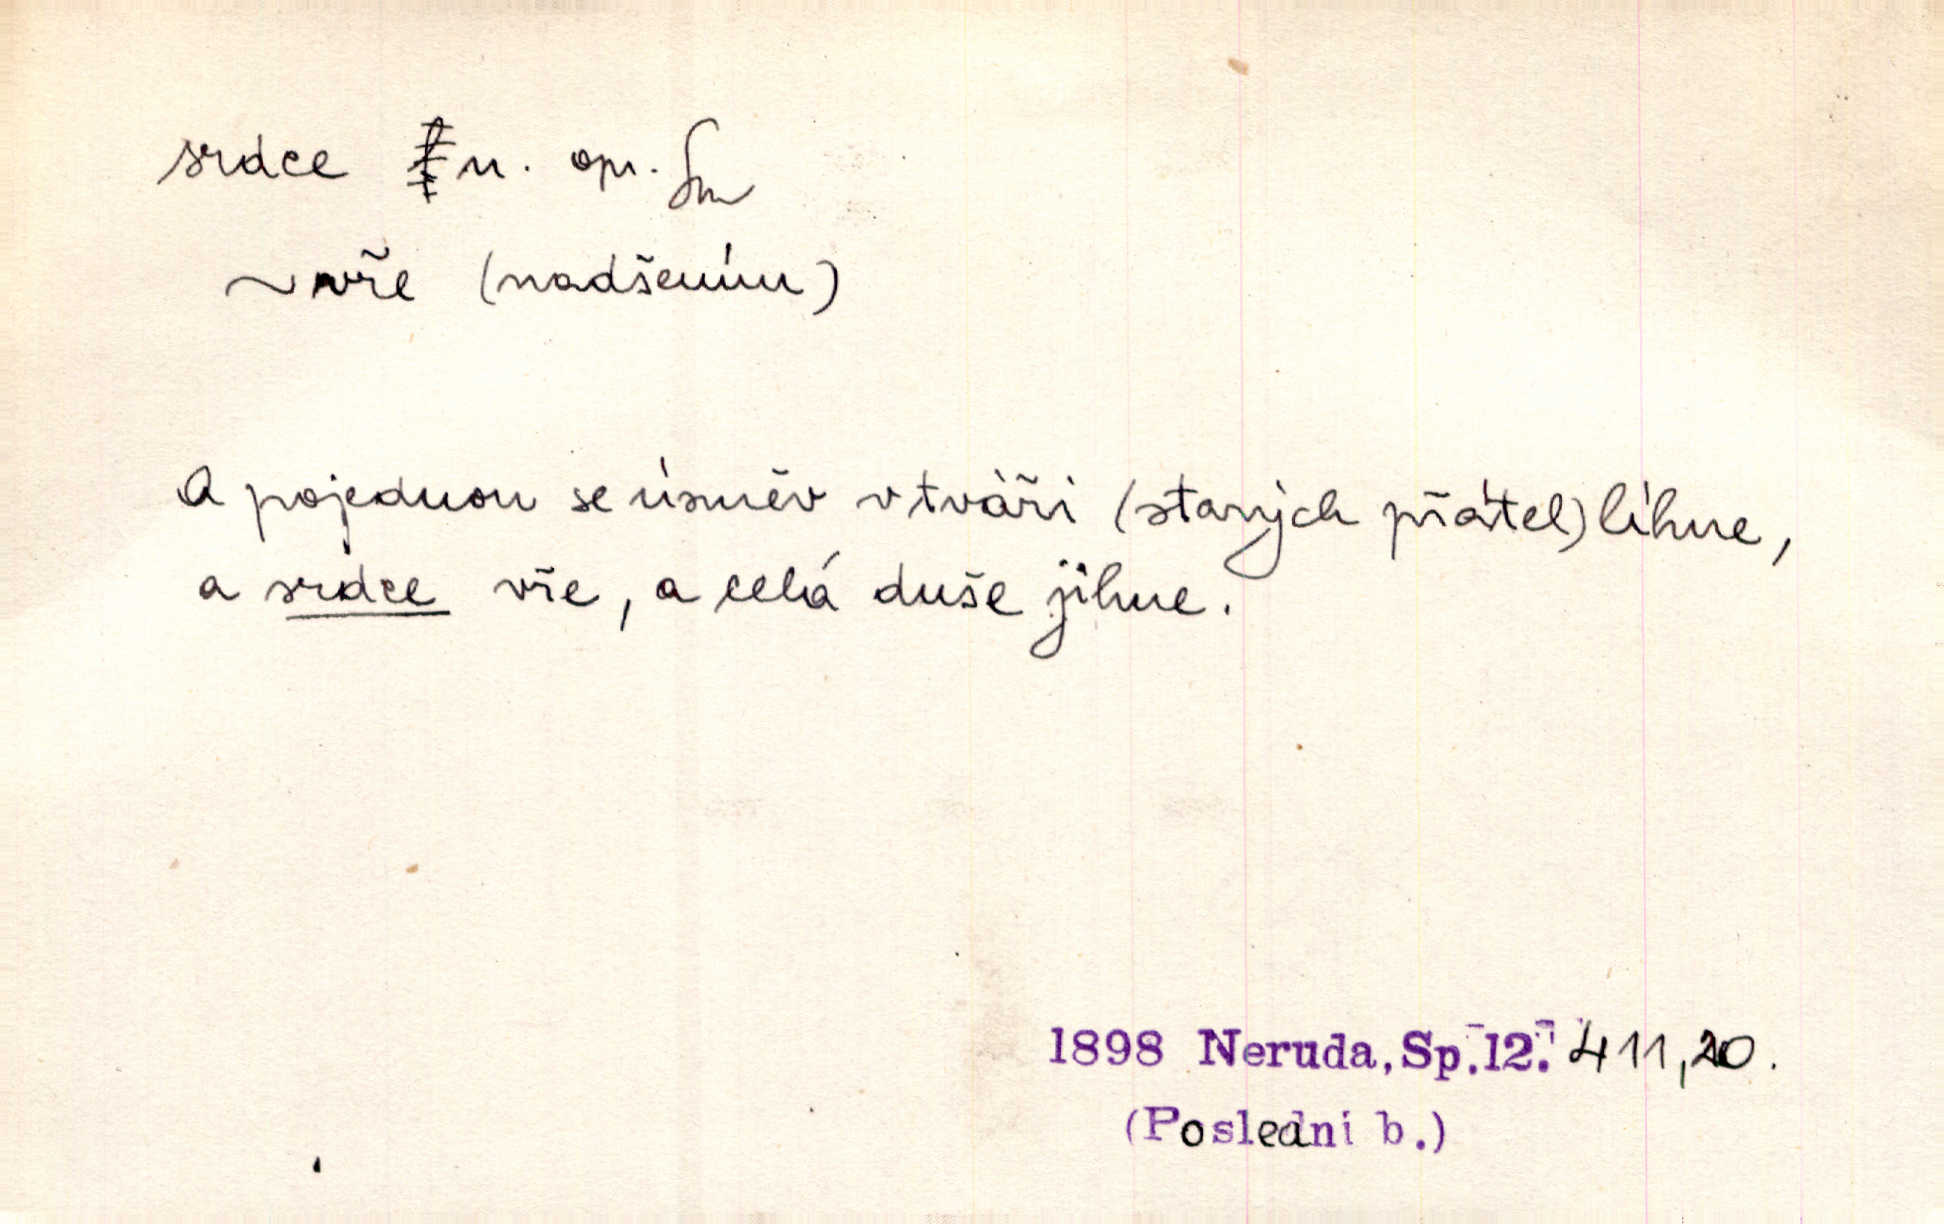 srdce n. opr. Sm
~ vře (nadšením)
A pojednou se úsměv v tváři (starých přátel) líhne,
a srdce vře, a celá duše jihne.
1898 Neruda, Sp. 12. 411,20.
(Poslední b.)